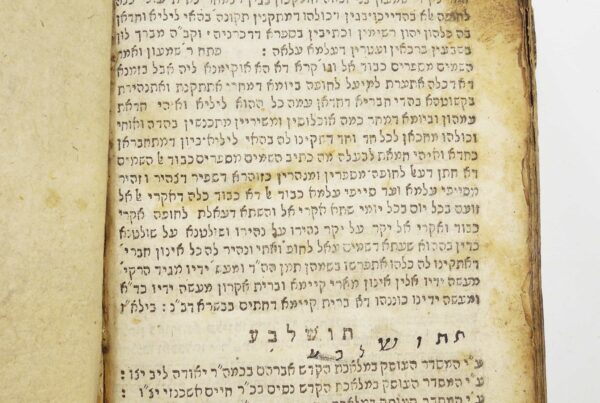 לחופה אלא בהדייכו בגין דכולהו מתקנין תקונה בהאי ליליא וחדאן
בה כלהון יהון רשימין וכתיבין בספרא דדכרניא וקב״ה מברך לון
בשבעין ברכאין ועטרין דעלמא עלאה : פתח ר׳ שמעון ואמר
השמים מספרים כבוד אל וגו׳ קרא דא הא אוקימנא ליה אבל בזמנא
דא דכלה אתערת למיעל לחופה ביומא דמחר אתתקנת ואתנהירת
בקשוטהא בהדי חבריא דחדאן עמה כל ההוא ליליא ואיהי חדאת
עמהון וביומא דמחר כמה אוכלוסין ומשיריין מתכנשין בהדה ואיהי
וכולהו מחכאן לכל חד וחד דתקינו לה בהאי ליליא כיון דמתחבראן
כחדא ואיהי חמאת לבעלה מה כתיב השמים מספרים כבוד אל השמים
דא חתן דעאל לחופה מספרין ומנהרין כזוהרא דספיר דנהיר וזהיר
מסייפי עלמא ועד סייפי עלמא כבוד אל דא כבוד כלה דאקרי אל אל
זועם בכל יום בכל יומי שתא אקרי אל והשתא דעאלת לחופה אקרי
כבוד ואקרי אל יקר על יקר נהירו על נהירו ושולטנא על שולטנא
כדין בההוא שעתא דשמים עאל לחופה ואתי ונהיר לה כל אינון חברי׳
דאתקינו לה כלהו אתפרשו בשמהן תמן הה״ד ומעשה ידיו מגיד הרקי׳
מעשה ידיו אלין אינון מארי קיימא וברית אקרון מעשה ידיו כד״א
ומעשה ידינו כוננהו דא ברית קיימא דחתים בבשרא דב״נ : בילא״ו
תתושלבע חושלבע
ע״י המסדר העוסק במלאכת הקדש אברהם בכמה״ר יאודה ליב יצו :
ע״י המסדר העוסק במלאכת הקדש נסים בכ״ר חיים אשכנזי יצ״ו :